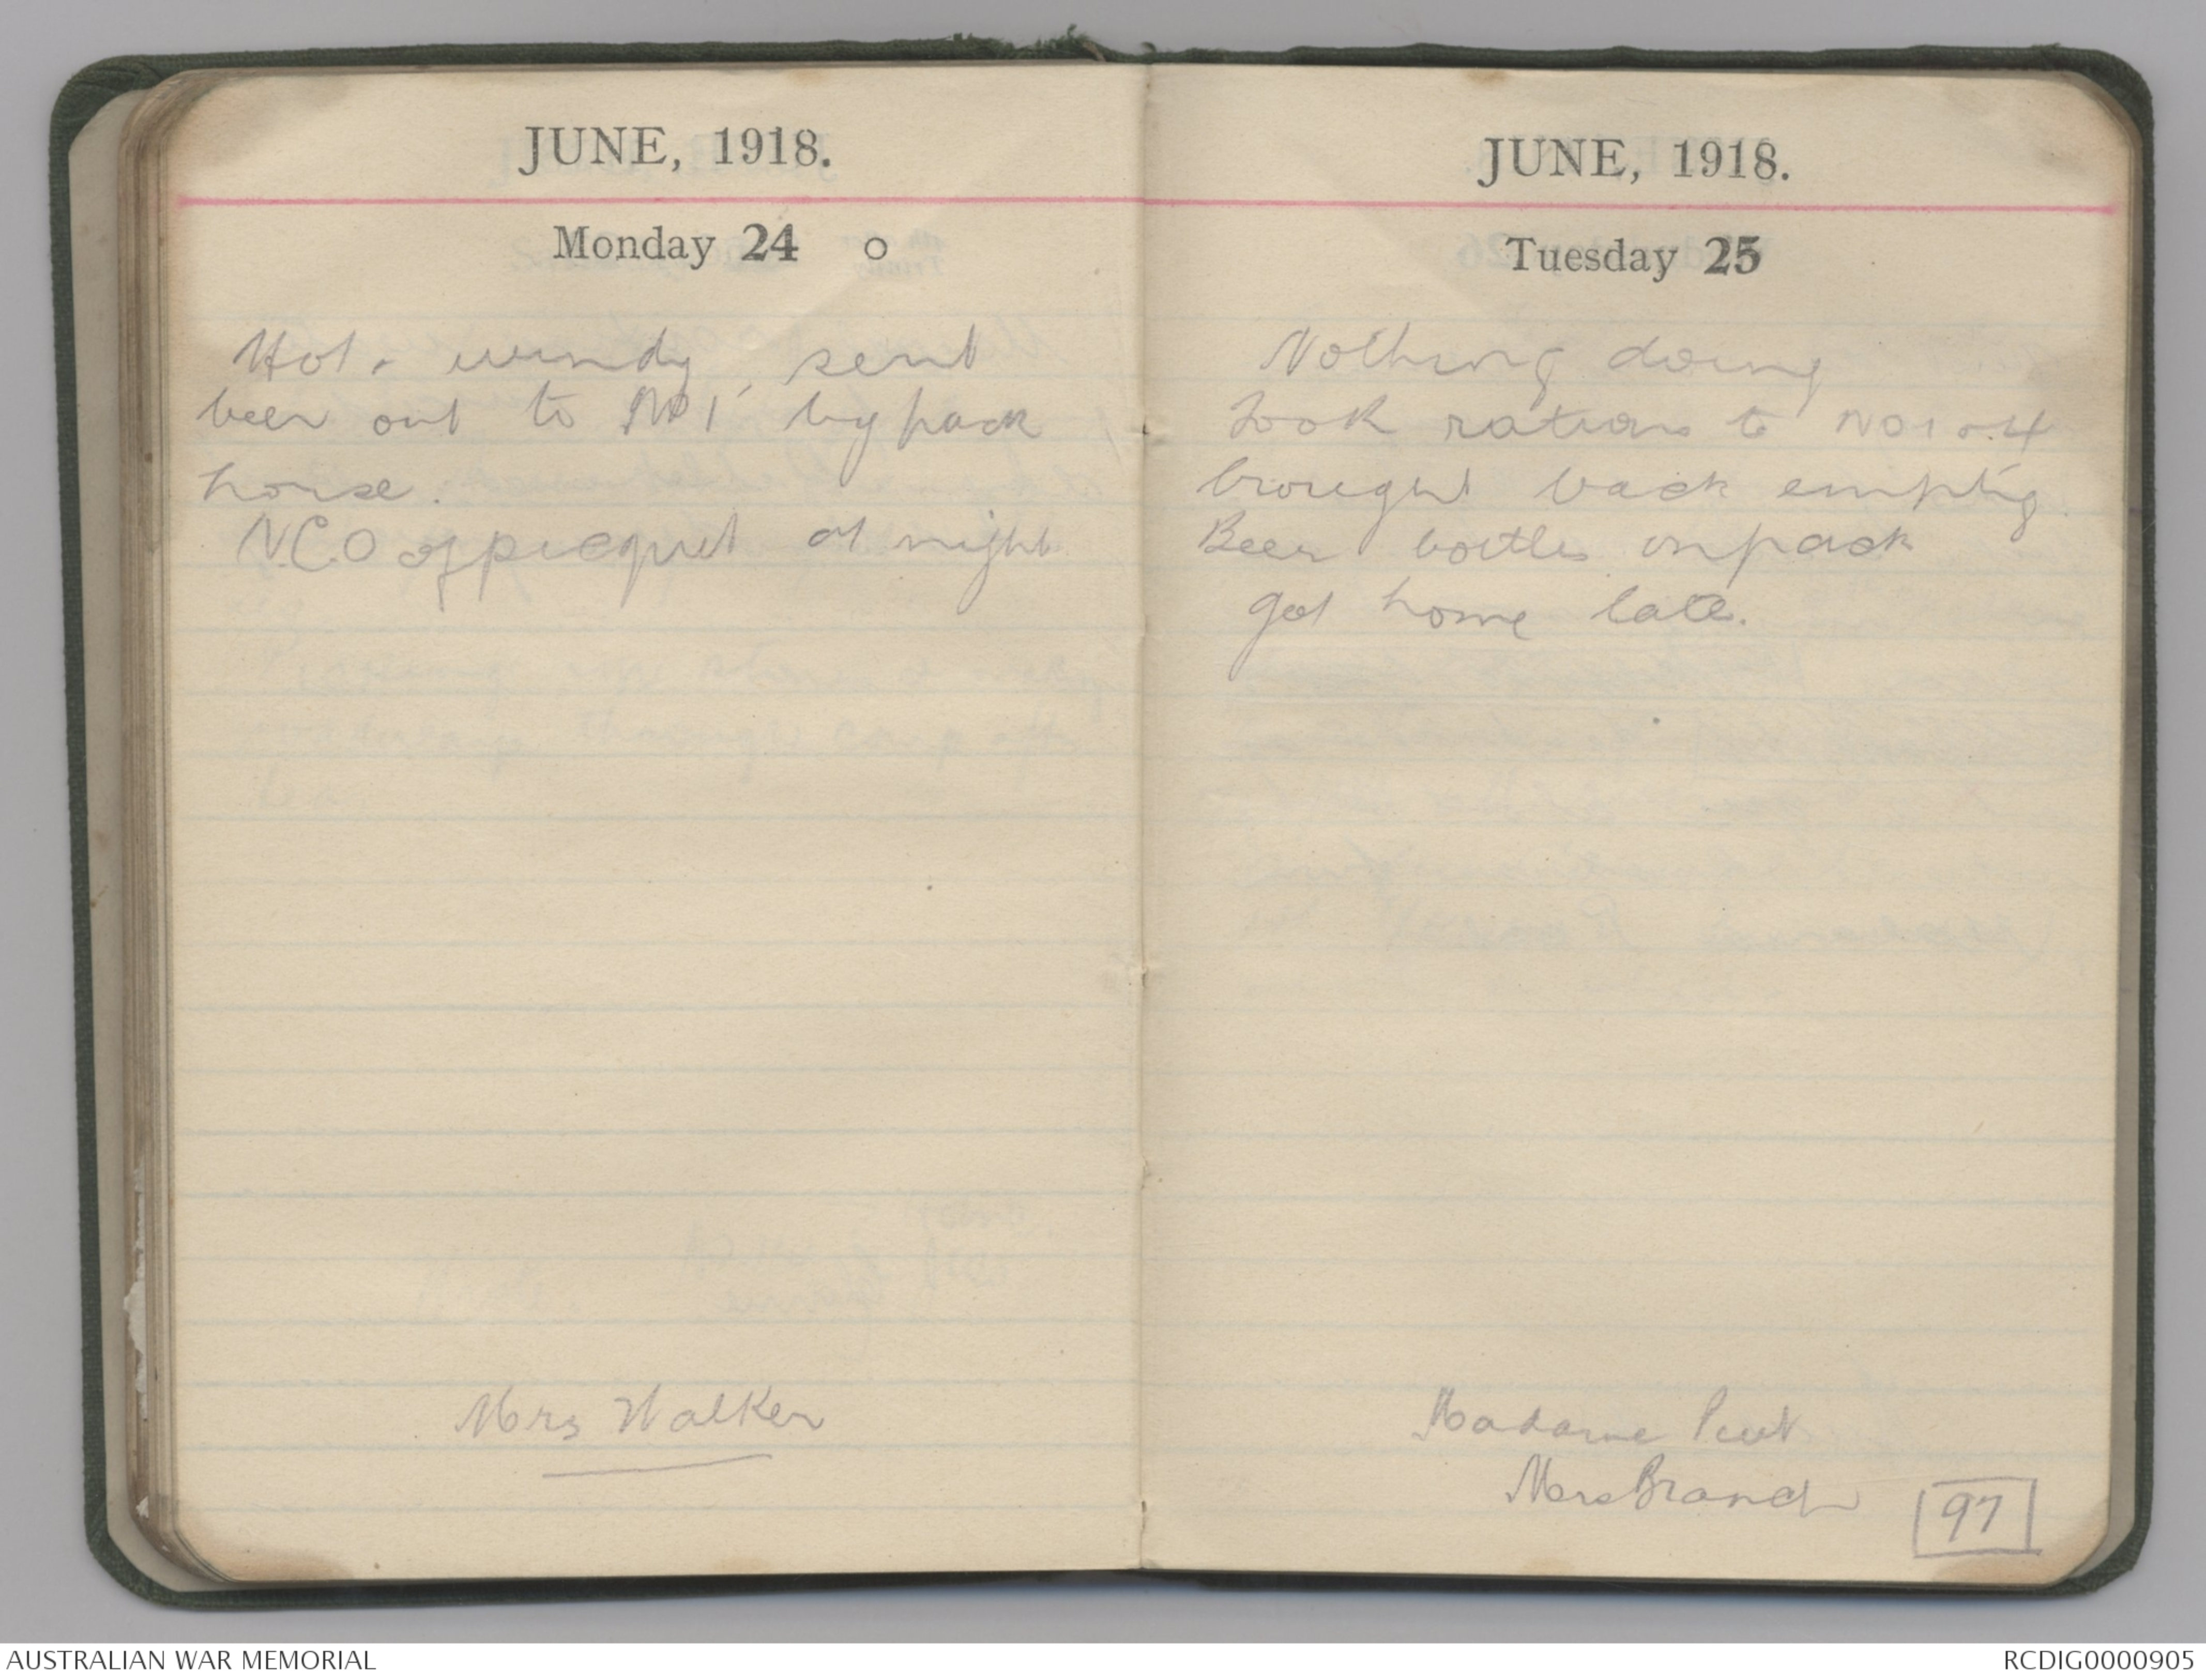 JUNE, 1918.
Monday 24 o
Hot & windy sent
beer out to No 1 by pack
horse.
N.C.O of picquet at night
Mrs Walker
JUNE, 1918.
Tuesday 25
Nothing doing
Took rations to No 1 & 4
brought back empty
Beer bottles on pack
got home late.
Madame
Mrs Branch
97
AUSTRALIAN WAR MEMORIAL
RCDIG0000905